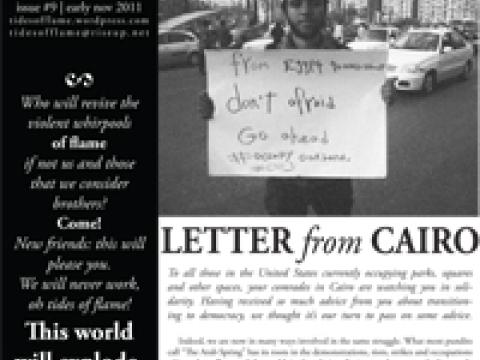 issue #9 | early nov 2011
tidesofflame.wordpress.com
tidesofflame@riseup.net
Who will revive the
violent whirpools
of flame
if not us and those
that we consider
brothers?
Come!
New friends: this will
please you.
We will never work,
oh tides of flame!
This world
will explode
from Egypt
don't afraid
Go ahead
LETTER from CAIRO
To all those in the United States currently occupying parks, squares
and other spaces, your comrades in Cairo are watching you in soli-
darity. Having received so much advice from you about transition-
ing to democracy, we thought it's our turn to pass on some advice.
Indeed, we are now in many ways involved in the same struggle. What most pundits
call "The Arab Spring" has its roots in the demonstrations, riots, strikes and occupations